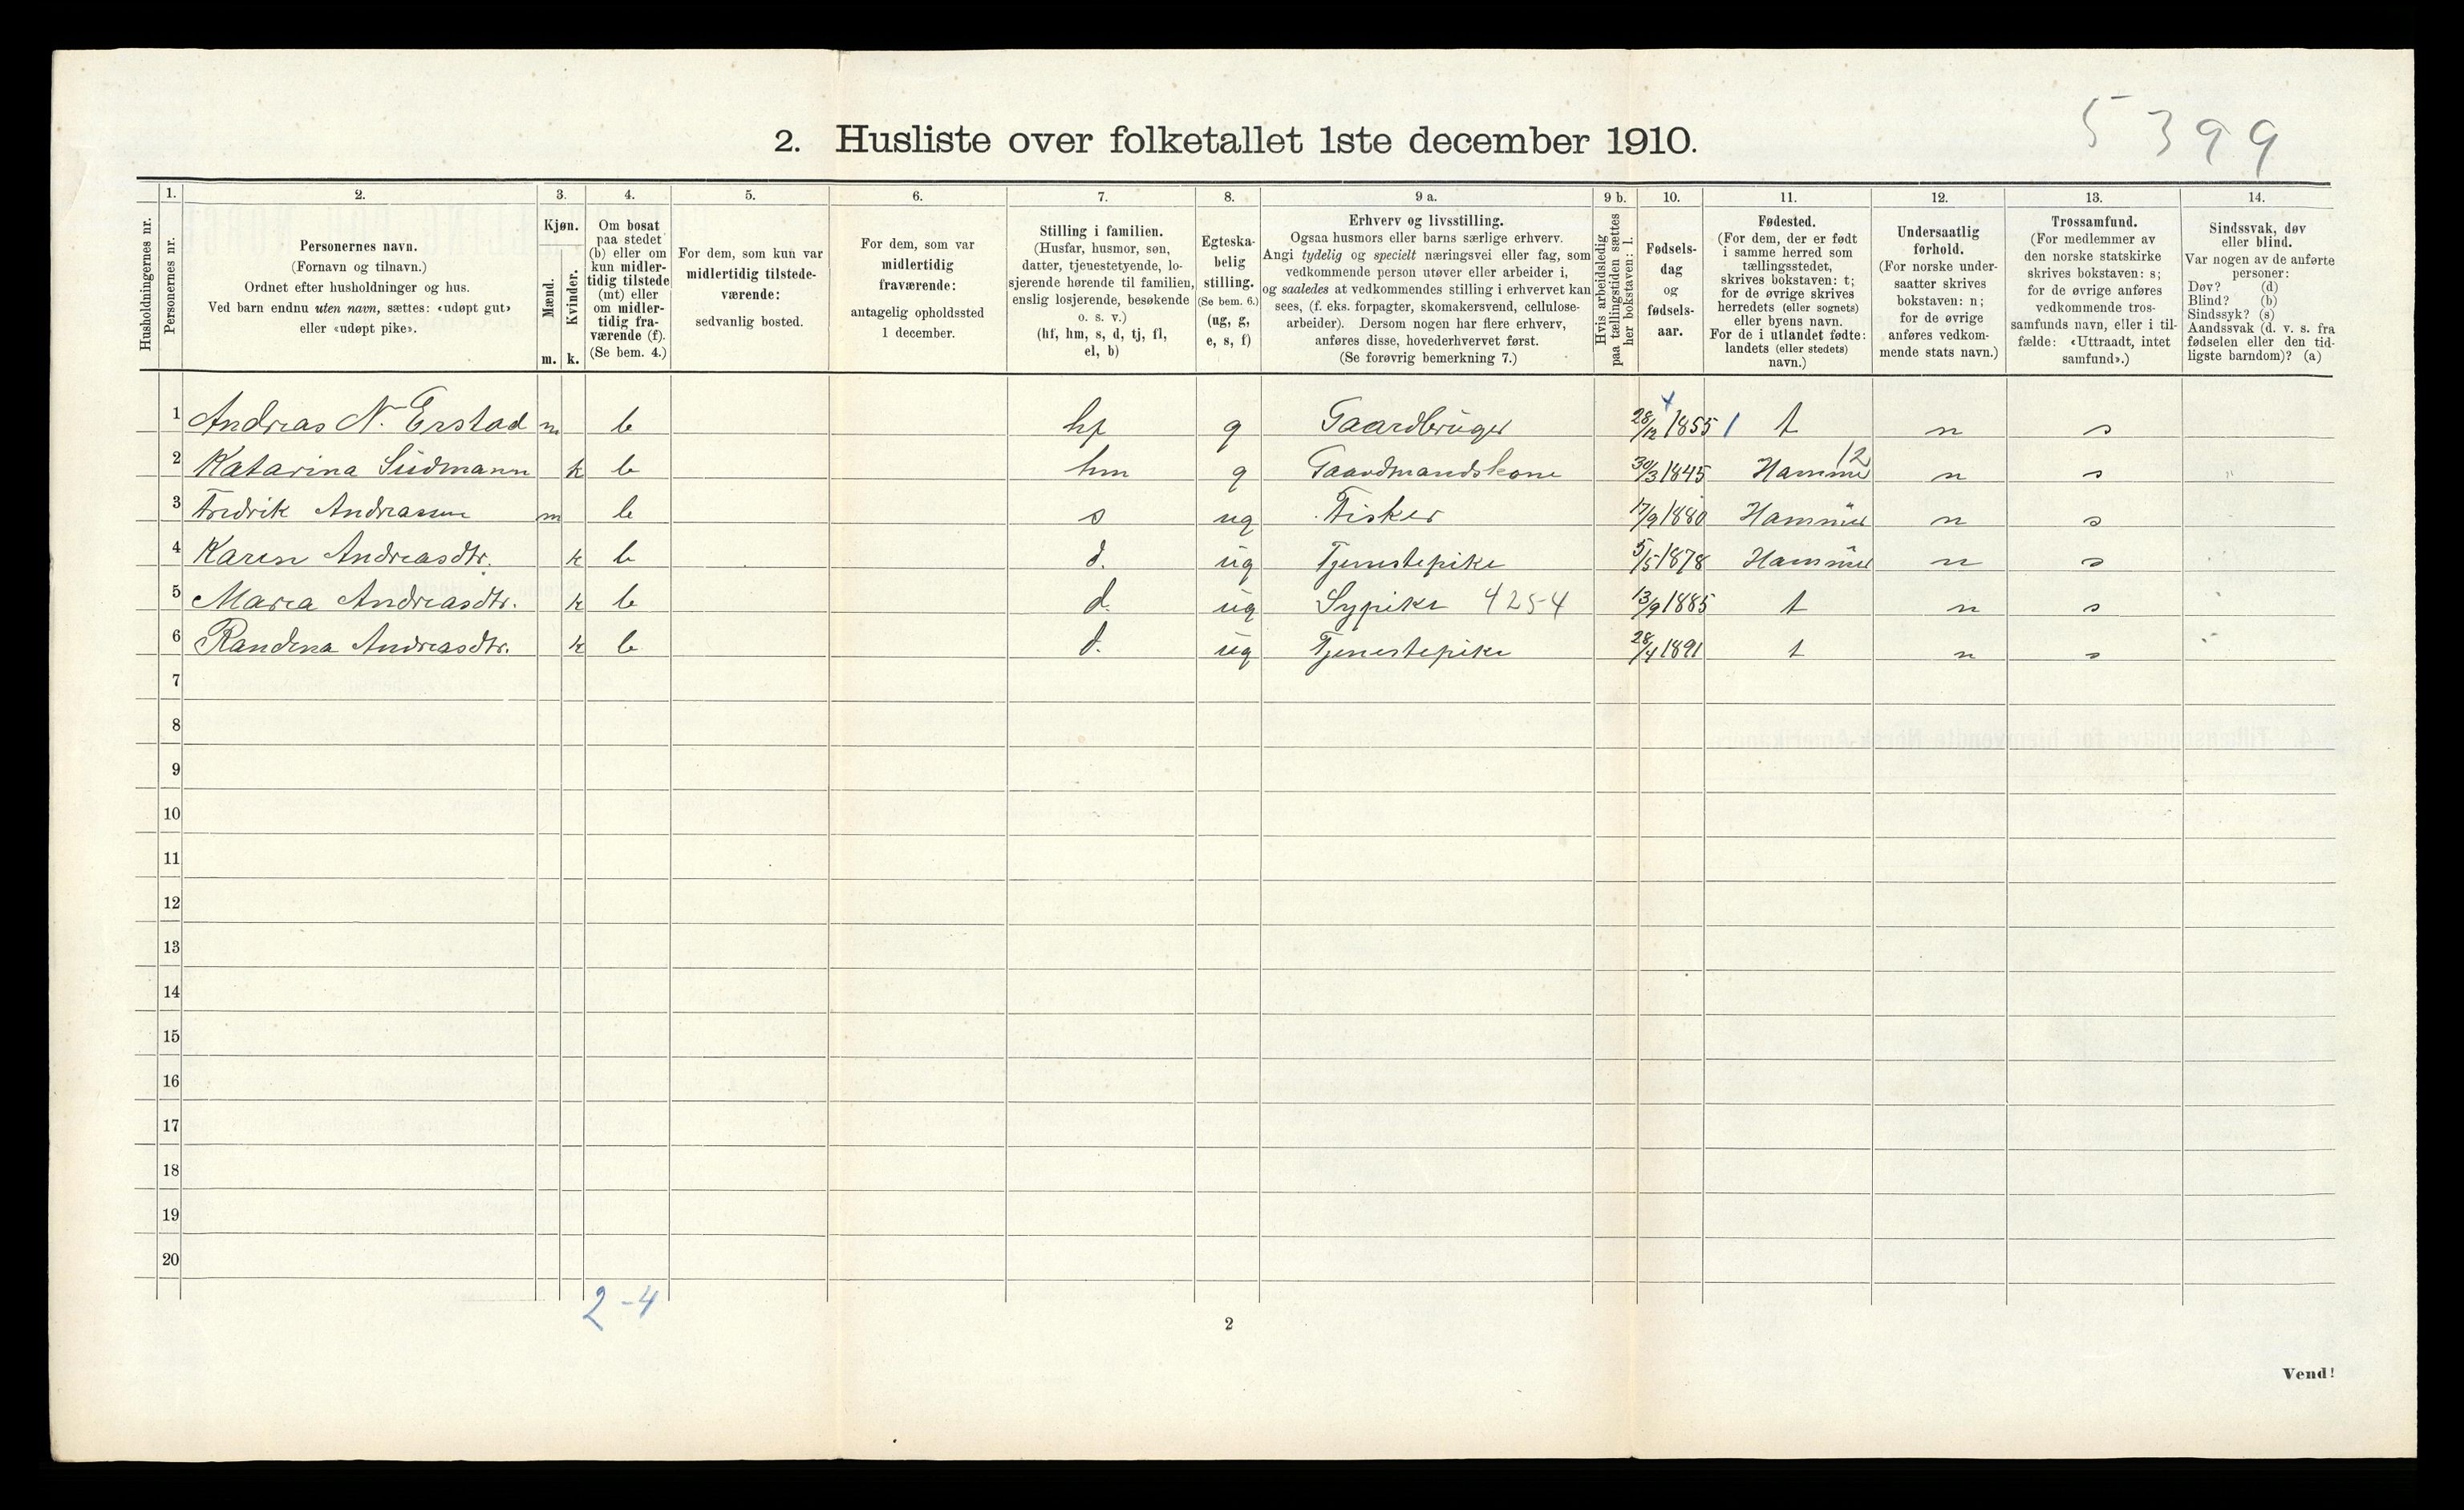 5399
2. Husliste over folketallet 1ste december 1910.
Husholdningernes nr.
1. Personernes nr.
2. Personernes navn. (Fornavn og tilnavn.) Ordnet efter husholdninger og hus. Ved barn endnu uten navn, sættes: «udøpt gut» eller «udøpt pike».
3. Kjøn. Mænd. m. Kvinder. k.
4. Om bosat paa stedet (b) eller om kun midlertidig tilstede (mt) eller om midlertidig fraværende (f). (Se bem. 4.)
5. For dem, som kun var midlertidig tilstedeværende: sedvanlig bosted.
6. For dem, som var midlertidig fraværende: antagelig opholdssted 1 december.
7. Stilling i familien. (Husfar, husmor, søn, datter, tjenestetyende, losjerende hørende til familien, enslig losjerende, besøkende o. s. v.) (hf, hm, s, d, tj, fl, el, b)
8. Egteskabelig stilling. (Se bem. 6.) (ug, g, e, s, f)
9 a. Erhverv og livsstilling. Ogsaa husmors eller barns særlige erhverv. Angi tydelig og specielt næringsvei eller fag, som vedkommende person utøver eller arbeider i, og saaledes at vedkommendes stilling i erhvervet kan sees, (f. eks. forpagter, skomakersvend, cellulosearbeider). Dersom nogen har flere erhverv, anføres disse, hovederhvervet først. (Se forøvrig bemerkning 7.)
9 b. Hvis arbeidsledig paa tællingstiden sættes her bokstaven: l.
10. Fødselsdag og fødselsaar.
11. Fødested. (For dem, der er født i samme herred som tællingsstedet, skrives bokstaven: t; for de øvrige skrives herredets (eller sognets) eller byens navn. For de i utlandet fødte: landets (eller stedets) navn.)
12. Undersaatlig forhold. (For norske undersaatter skrives bokstaven: n; for de øvrige anføres vedkommende stats navn.)
13. Trossamfund. (For medlemmer av den norske statskirke skrives bokstaven: s; for de øvrige anføres vedkommende trossamfunds navn, eller i tilfælde: «Uttraadt, intet samfund».)
14. Sindssvak, døv eller blind. Var nogen av de anførte personer: Døv? (d) Blind? (b) Sindssyk? (s) Aandssvak (d. v. s. fra fødselen eller den tidligste barndom)? (a)
1 Andreas N. Erstad m b hf g Gaardbruger 28/12 1855 t n s
2 Katarina Südmann k b hm g Gaardmandskone 30/3 1845 Hammer 12 n s
3 Fredrik Andreassen m b s ug Fisker 17/9 1880 Hammer n s
4 Karen Andreasdtr. k b d. ug Tjenestepike 5/5 1878 Hammer n s
5 Maria Andreasdtr. k b d. ug Sypike 4254 13/9 1885 t n s
6 Randina Andreasdtr. k b d. ug Tjenestepike 28/4 1891 t n s
7
8
9
10
11
12
13
14
15
16
17
18
19
20
2-4
2
Vend!